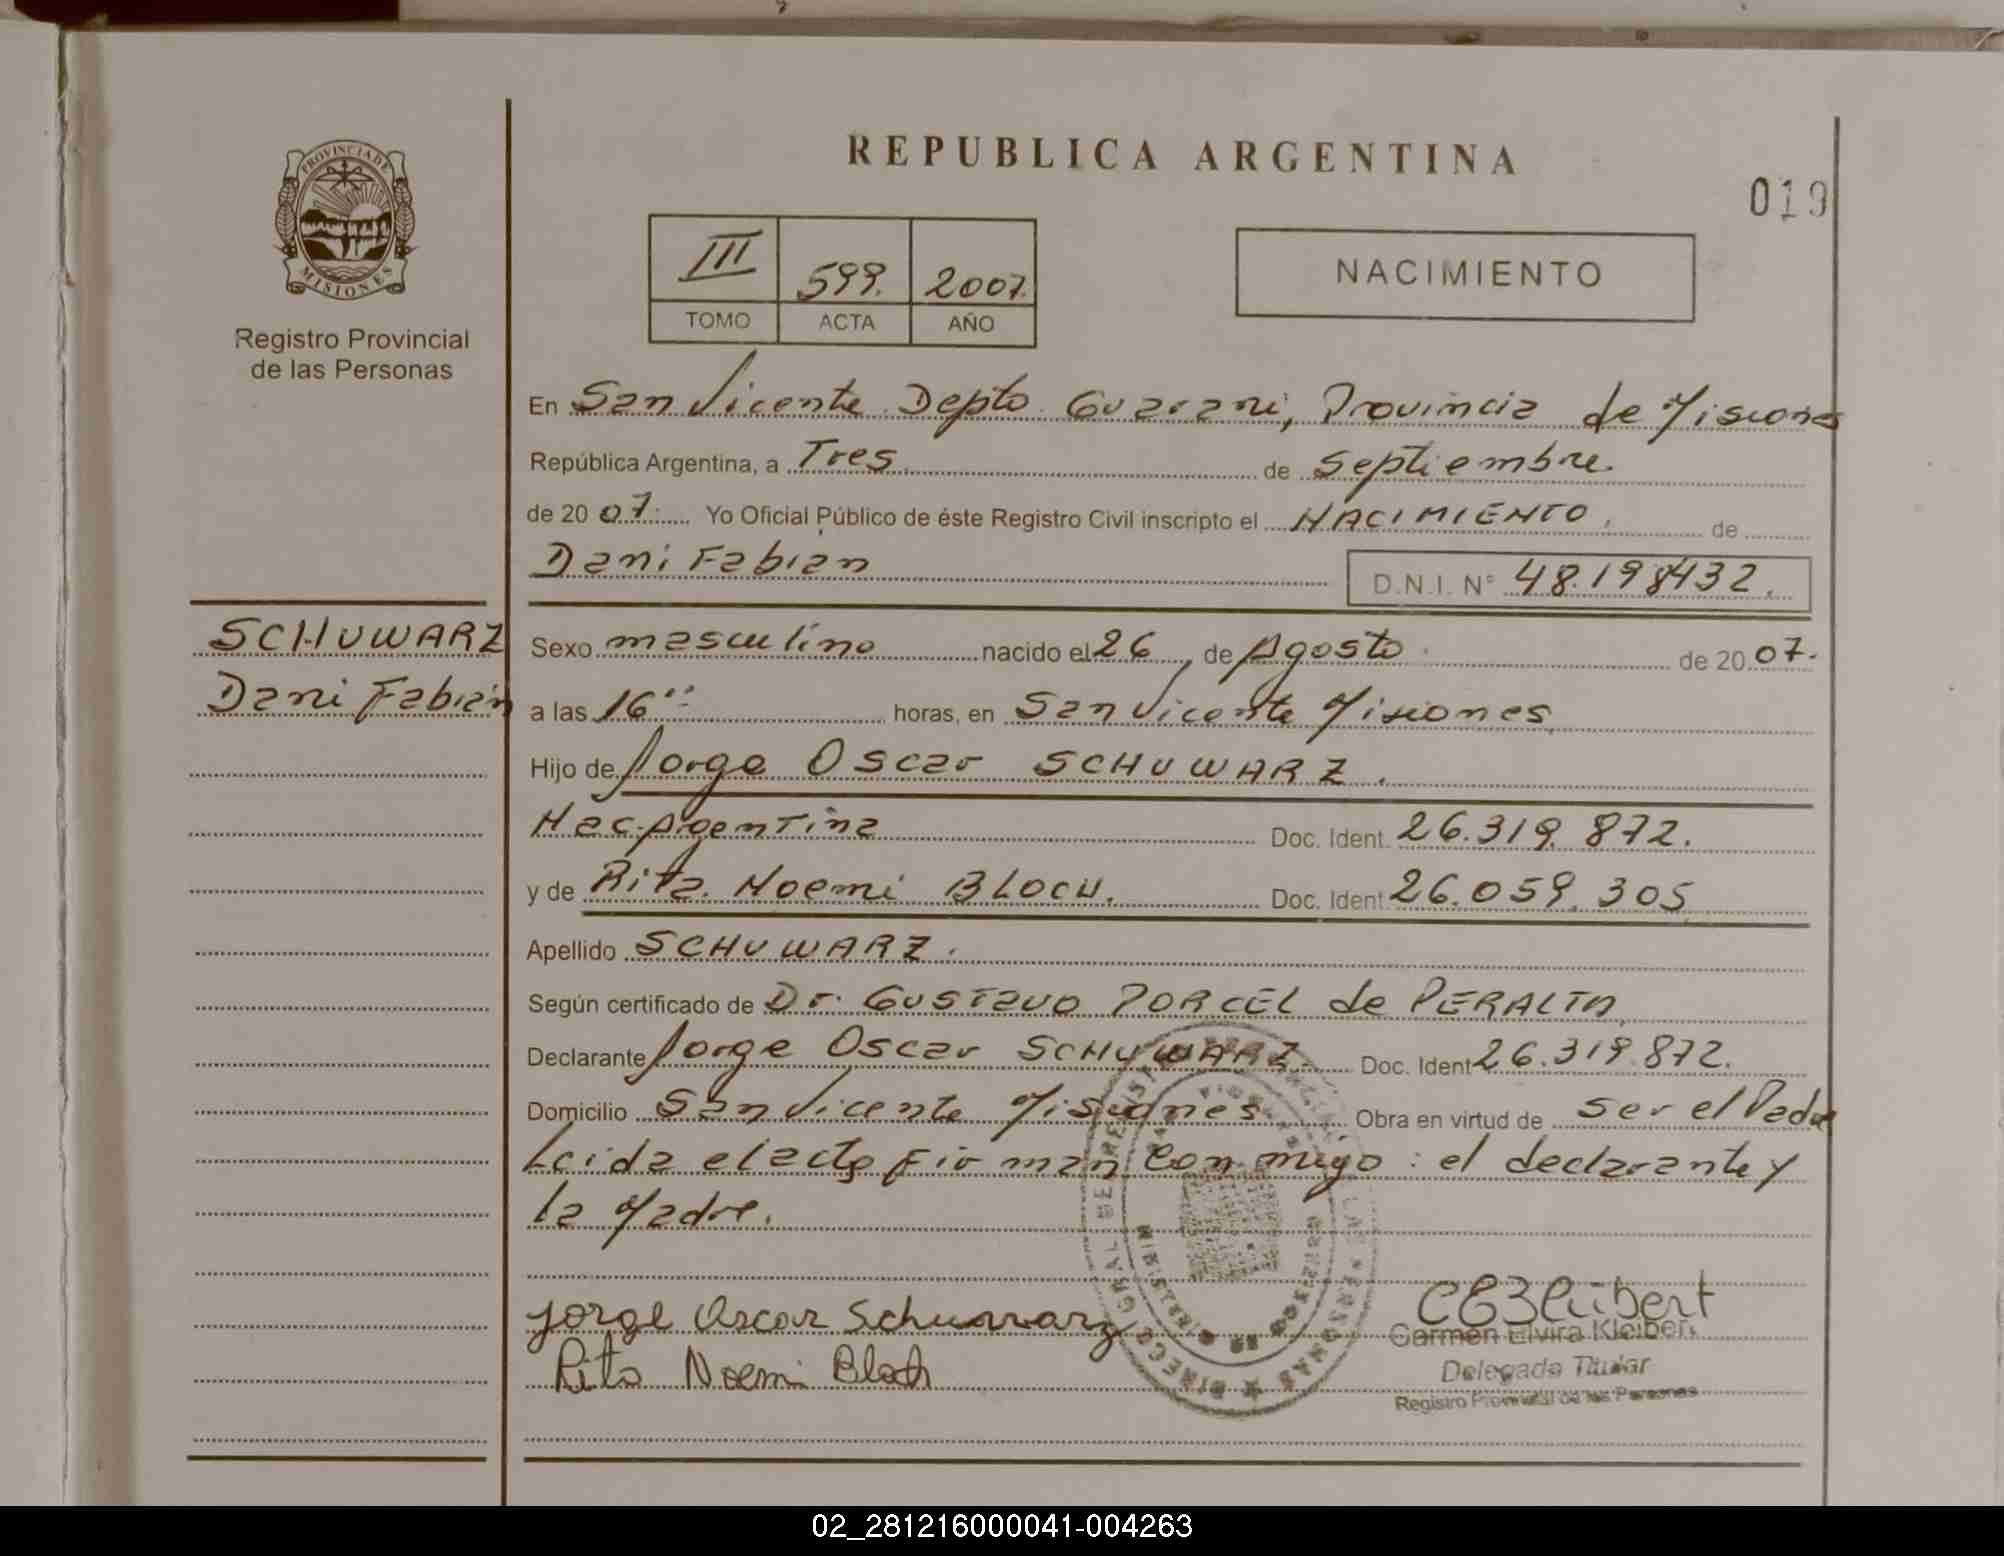 PROVINCIA DE
MISIONES
Registro Provincial
de las Personas
REPUBLICA ARGENTINA
019
III 599. 2007.
TOMO ACTA AÑO
NACIMIENTO
En San Vicente Depto Guarani, Provincia de Misiones
República Argentina, a Tres de Septiembre.
de 20 07. Yo Oficial Público de éste Registro Civil inscripto el NACIMIENTO. de
Dani Fabian D.N.I. Nº 48.198432.
SCHUWARZ
Dani Fabian
Sexo masculino nacido el 26 de Agosto de 20 07.
a las 16 horas, en San Vicente Misiones
Hijo de Jorge Oscar SCHUWARZ.
Nac. Argentina Doc. Ident. 26.319.872.
y de Rita Noemi BLOCH. Doc. Ident. 26.059.305
Apellido SCHUWARZ.
Según certificado de Dr. Gustavo PORCEL de PERALTA
Declarante Jorge Oscar SCHUWARZ Doc. Ident 26.319.872.
Domicilio San Vicente Misiones Obra en virtud de ser el Padre
Leida el acta firman conmigo: el declarante y
la Madre.
Jorge Oscar Schuwarz
Rita Noemi Bloch
Carmen Elvira Kleibert
Delegada Titular
Registro Provincial de las Personas
02_281216000041-004263